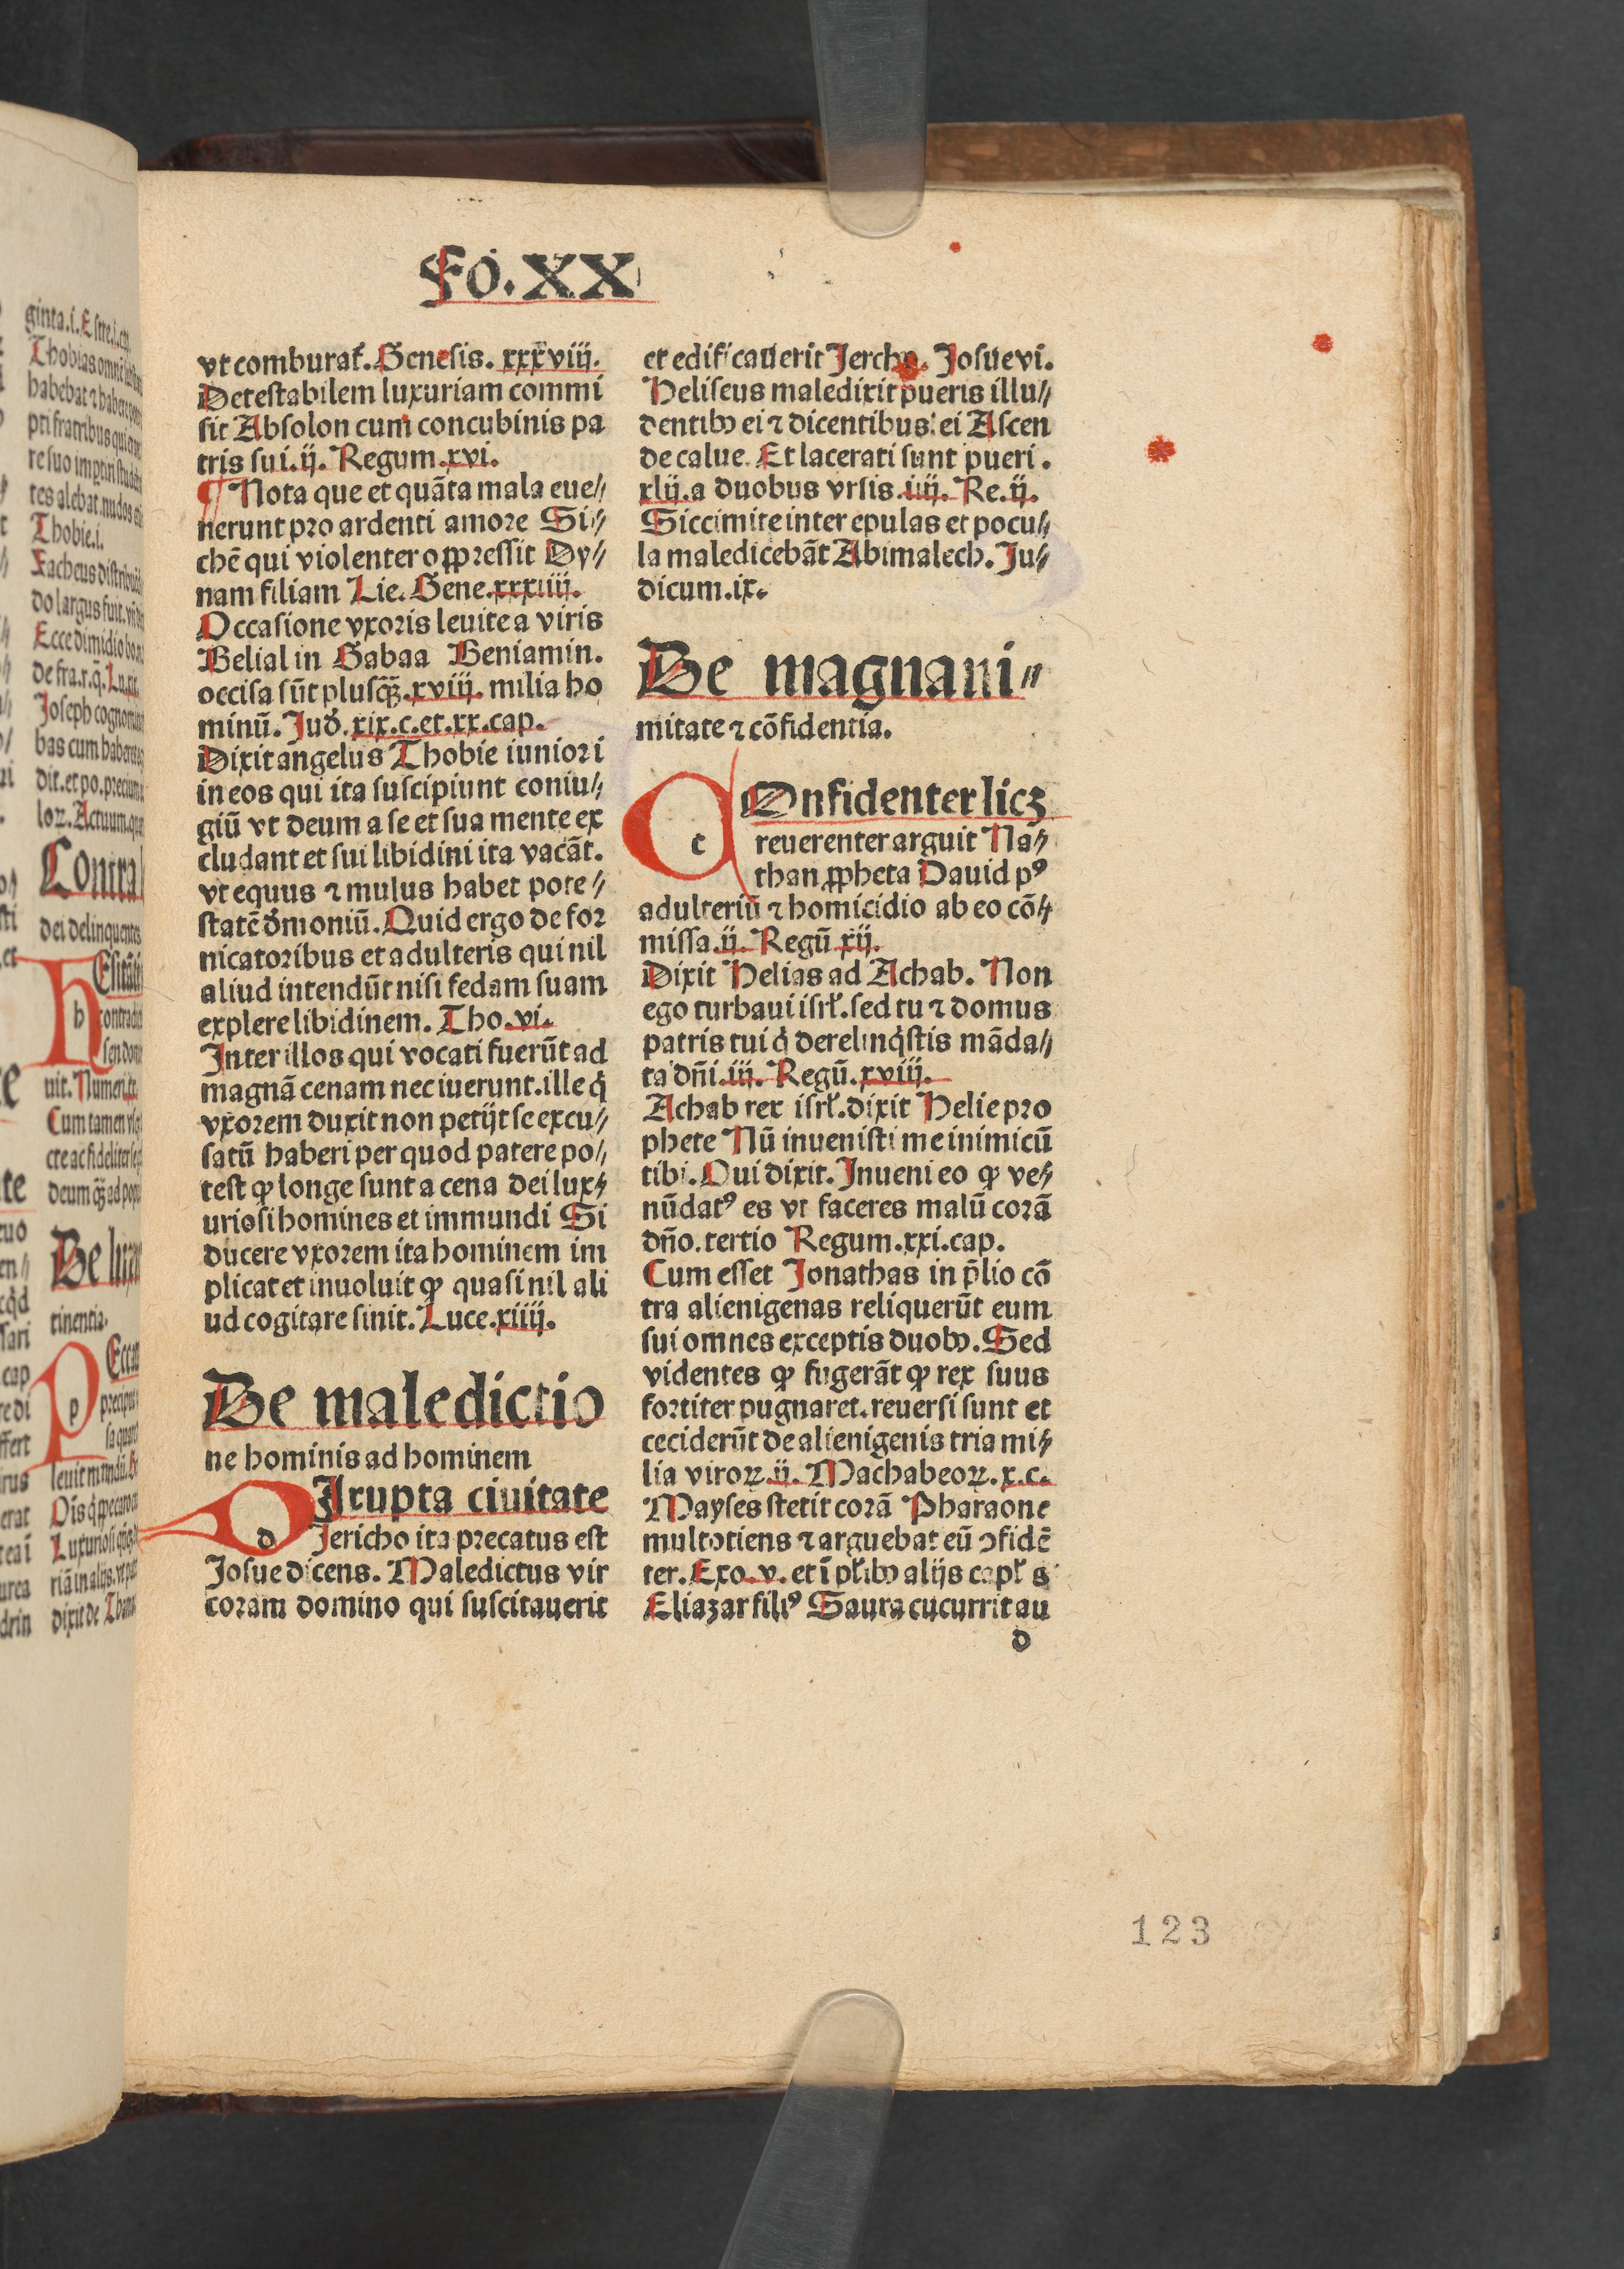 Fo. XX
vt comburat᷑. Genesis. xxxviij.
Detestabilem luxuriam commi
sit Absolon cum concubinis pa
tris sui. ij. Regum. xvi.
¶ Nota que et quāta mala eue⸗
nerunt pro ardenti amore Si⸗
chē qui violenter oppressit Dy⸗
nam filiam Lie. Gene. xxxiiij.
Occasione vxoris leuite a viris
Belial in Gabaa Beniamin.
occisa sūt plusq̄ꝫ. xviij. milia ho
minū. Jud̕. xix. c. et. xx. cap.
Dixit angelus Thobie iuniori
in eos qui ita suscipiunt coniu⸗
giū vt deum a se et sua mente ex
cludant et sui libidini ita vacāt.
vt equus ⁊ mulus habet pote⸗
statē d̕moniū. Quid ergo de for
nicatoribus et adulteris qui nil
aliud intendūt nisi fedam suam
explere libidinem. Tho. vi.
Inter illos qui vocati fuerūt ad
magnā cenam nec iuerunt. ille q̇
vxorem duxit non petijt se excu⸗
satū haberi per quod patere po⸗
test ꝙ longe sunt a cena dei lux⸗
uriosi homines et immundi Si
ducere vxorem ita hominem im
plicat et inuoluit ꝙ quasi nil ali
ud cogitare sinit. Luce. xiiij.
De maledictio
ne hominis ad hominem
d
Irupta ciuitate
Jericho ita precatus est
Josue dicens. Maledictus vir
coram domino qui suscitauerit
et edificauerit Jercho. Josue vi.
Heliseus maledixit pueris illu⸗
dentibꝰ ei ⁊ dicentibus ei Ascen
de calue. Et lacerati sunt pueri.
xlij. a duobus vrsis. iiij. Re. ij.
Siccimite inter epulas et pocu⸗
la maledicebāt Abimalech. Ju⸗
dicum. ix.
De magnani⸗
mitate ⁊ cōfidentia.
c
Onfidenter licꝫ
reuerenter arguit Na⸗
than ꝓpheta Dauid pꝰ
adulteriū ⁊ homicidio ab eo cō⸗
missa. ij. Regū xij.
Dixit Helias ad Achab. Non
ego turbaui isrł. sed tu ⁊ domus
patris tui q̇ derelinq̇stis māda⸗
ta dn̄i. iij. Regū. xviij.
Achab rex isrł. dixit Helie pro
phete Nū inuenisti me inimicū
tibi. Qui dixit. Inueni eo ꝙ ve⸗
nūdatꝰ es vt faceres malū corā
dn̄o. tertio Regum. xxi. cap.
Cum esset Jonathas in p̄lio cō
tra alienigenas reliquerūt eum
sui omnes exceptis duobꝰ. Sed
videntes ꝙ fugerāt ꝙ rex suus
fortiter pugnaret. reuersi sunt et
ceciderūt de alienigenis tria mi⸗
lia viroꝝ. ij. Machabeoꝝ. x. c.
Mayses stetit corā Pharaone
multotiens ⁊ arguebat eū ɔfidē
ter. Exo. v. et ī pl̄ibꝰ alijs capł s
Eliazar filiꝰ Saura cucurrit au
d
123